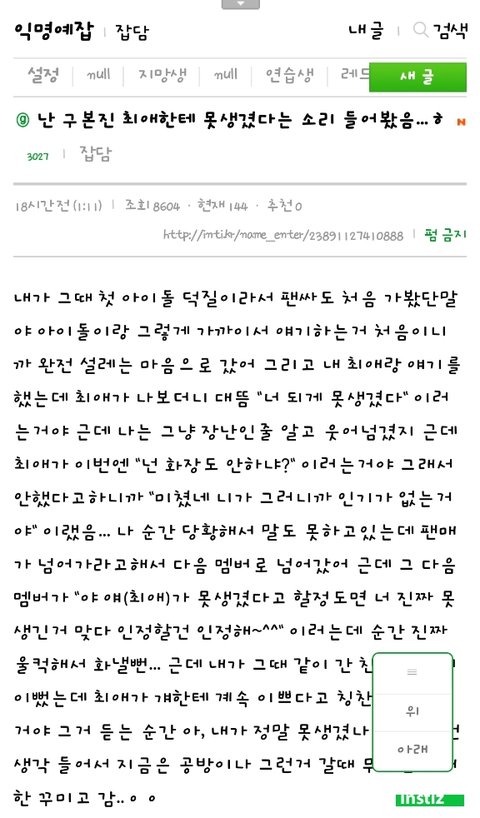 익명예잡 | 잡담 내 글 | 검색
설정 null 지망생 null 연습생 레드 새 글
ⓖ 난 구본진 최애한테 못생겼다는 소리 들어봤음...ㅎ N
3027 | 잡담
18시간 전 (1:11) | 조회 8604 · 현재 144 · 추천 0
http://inti.kr/name_enter/23891127410888 | 펌 금지
내가 그때 첫 아이돌 덕질이라서 팬싸도 처음 가봤단말
야 아이돌이랑 그렇게 가까이서 얘기하는거 처음이니
까 완전 설레는 마음으로 갔어 그리고 내 최애랑 얘기를
했는데 최애가 나보더니 대뜸 "너 되게 못생겼다" 이러
는거야 근데 나는 그냥 장난인줄 알고 웃어넘겼지 근데
최애가 이번엔 "넌 화장도 안하냐?" 이러는거야 그래서
안했다고하니까 "미쳤네 니가 그러니까 인기가 없는거
야" 이랬음... 나 순간 당황해서 말도 못하고있는데 팬매
가 넘어가라고해서 다음 멤버로 넘어갔어 근데 그 다음
멤버가 "야 얘(최애)가 못생겼다고 할정도면 너 진짜 못
생긴거 맞다 인정할건 인정해~^^" 이러는데 순간 진짜
울컥해서 화낼뻔... 근데 내가 그때 같이 간 친
이뻤는데 최애가 걔한테 계속 이쁘다고 칭찬
위
거야 그거 듣는 순간 아, 내가 정말 못생겼나
아래
생각 들어서 지금은 공방이나 그런거 갈때
한 꾸미고 감..ㅇㅇ
instiz